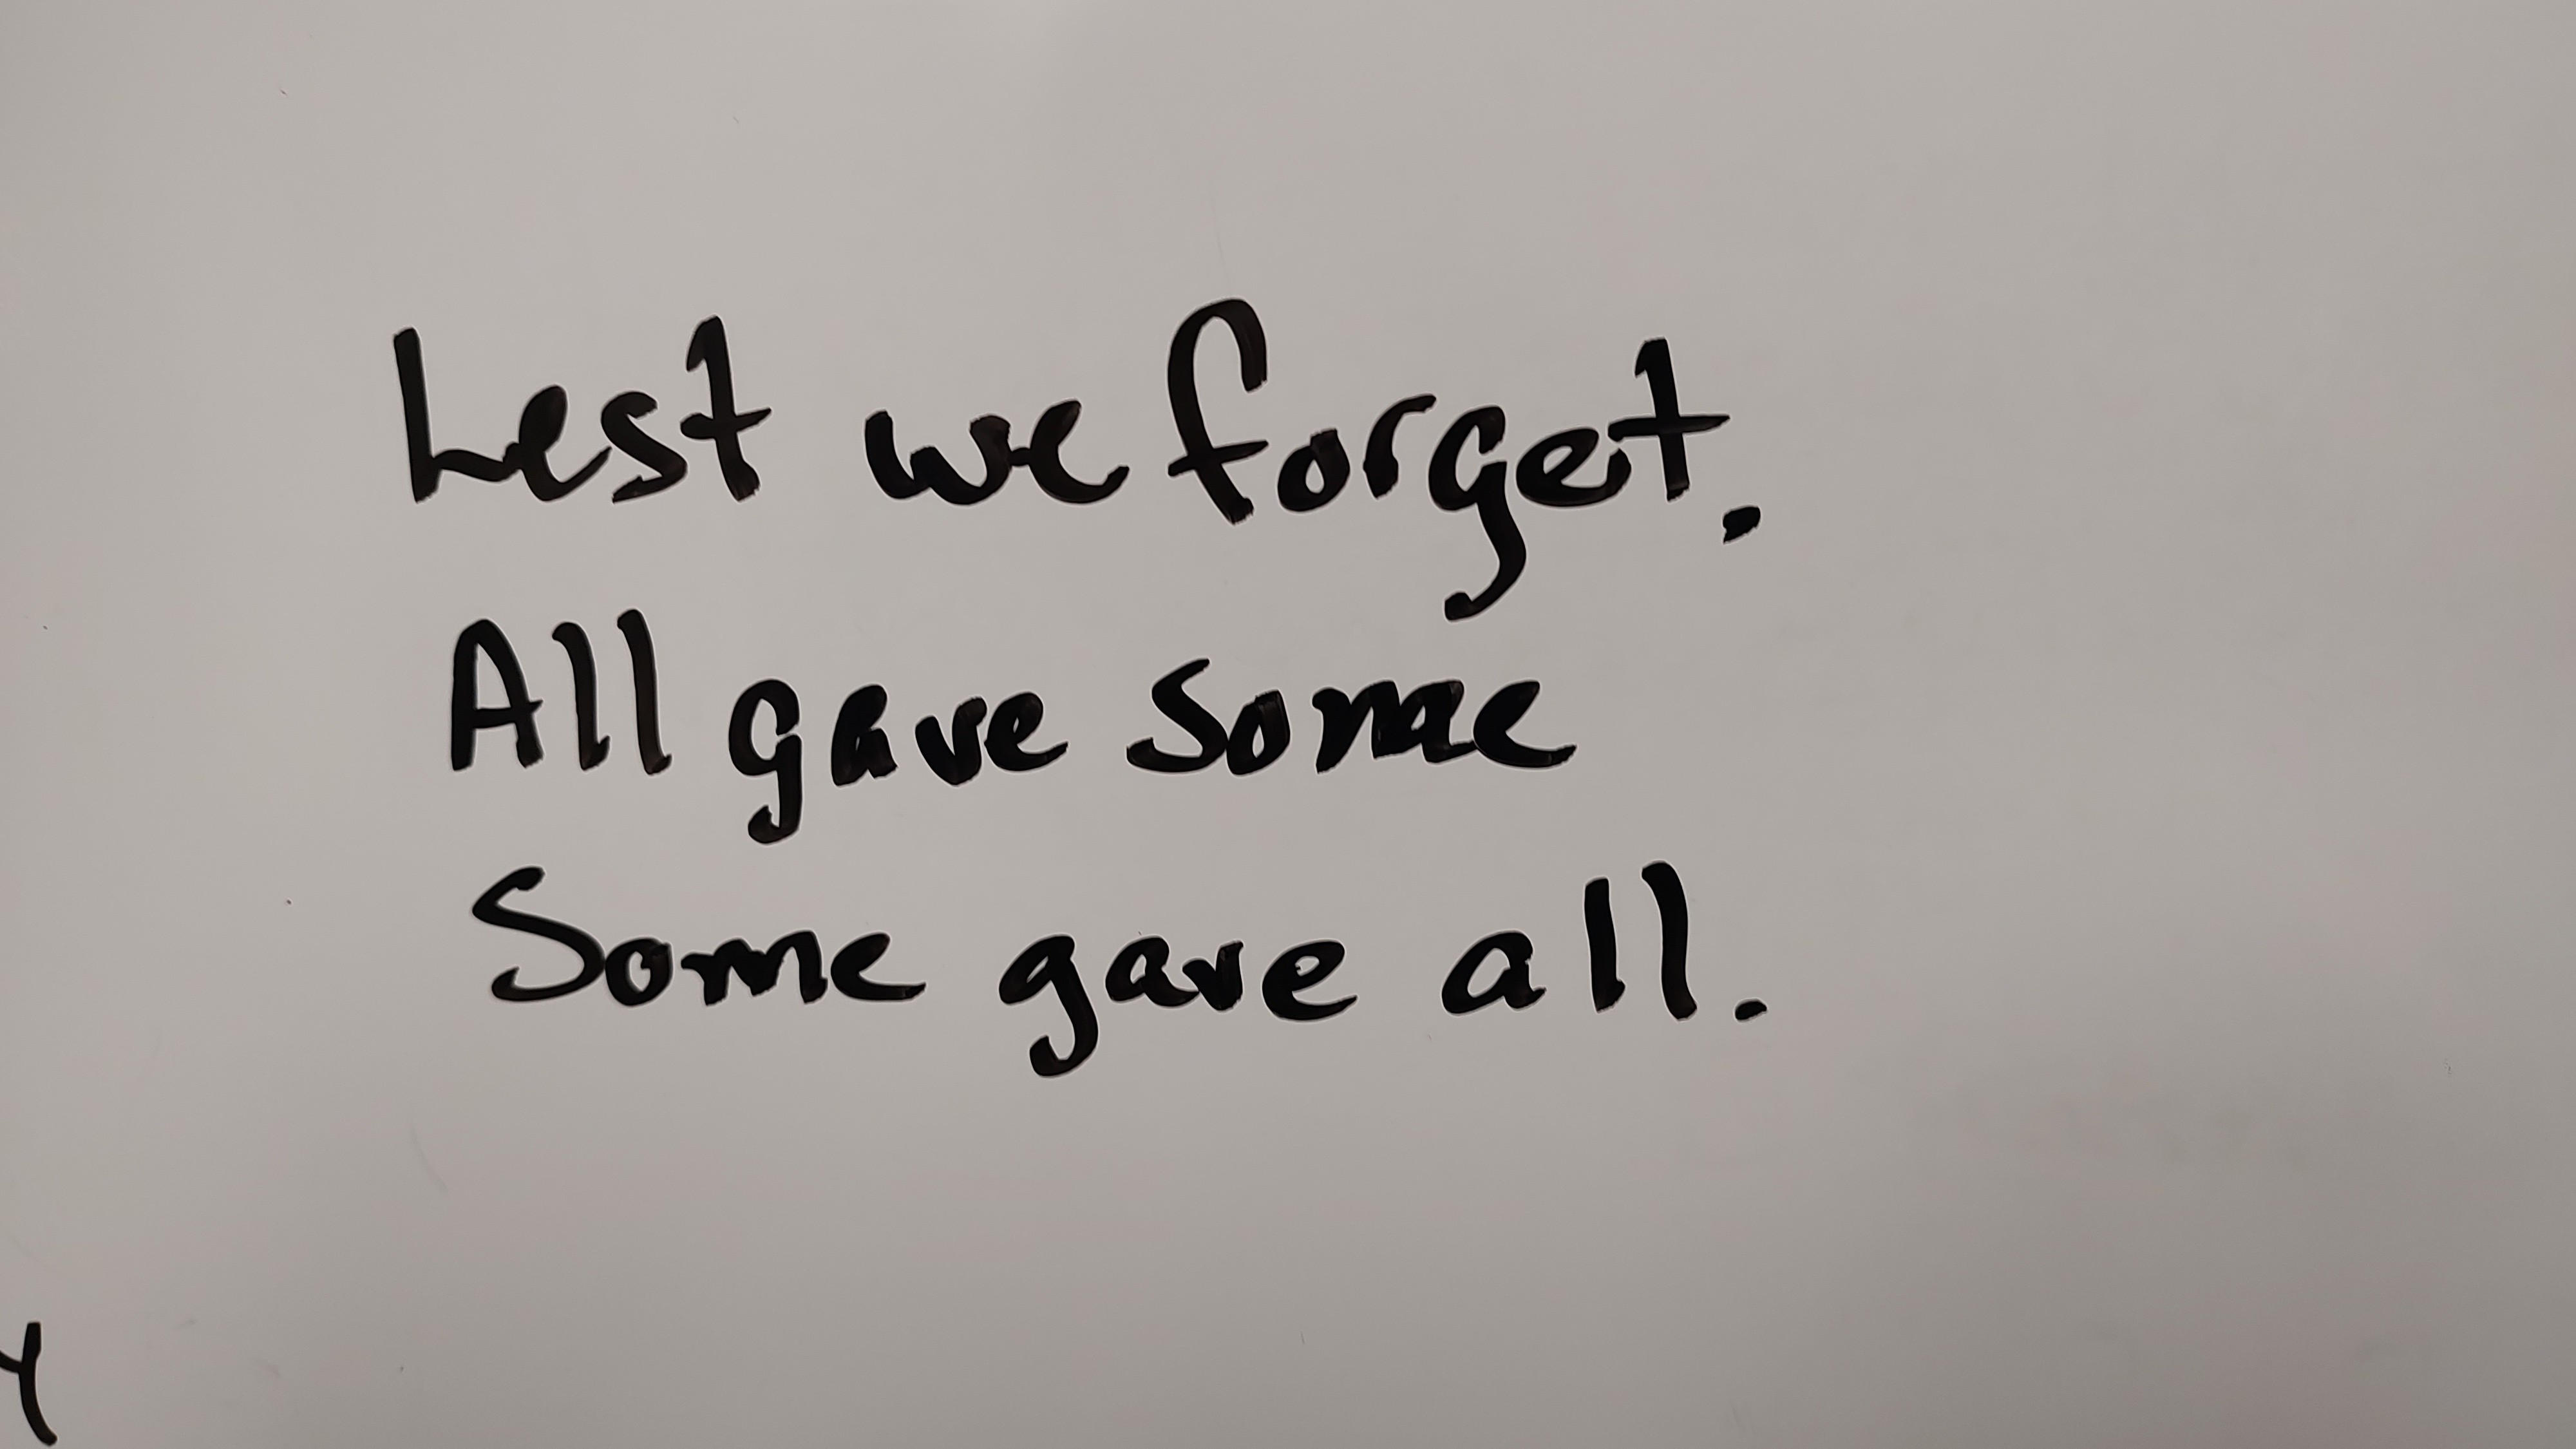 Lest we forget.
All gave some
Some gave all.